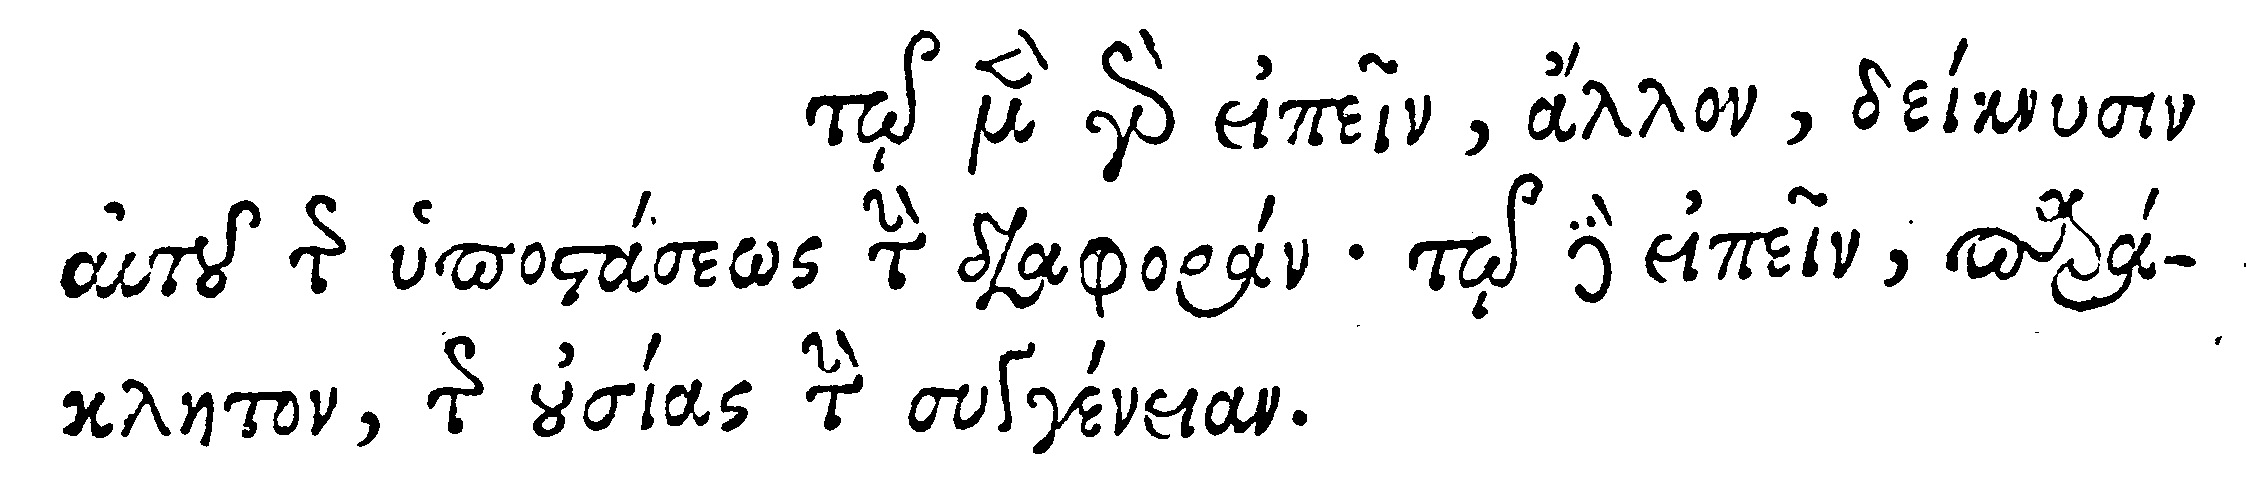 τῷ μὲν γὰρ εἰπεῖν, ἄλλον, δείκνυσιν
αὐτοῦ τῆς ὑποστάσεως τὴν διαφοράν· τῷ δὲ εἰπεῖν, παρά-
κλητον, τῆς οὐσίας τὴν συγγένειαν.